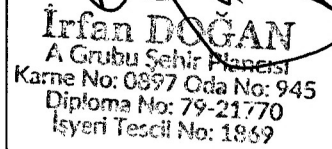 İrfan DOĞAN
A Grubu Şehir Plancısı
Karne No: 0897 Oda No: 945
Diploma No: 79-21770
İşyeri Tescil No: 1869